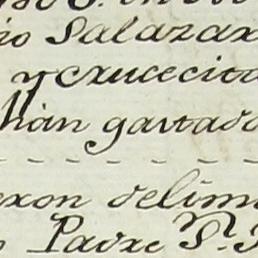 io Salazar
y crucecita
han gastado
eron delim
Padre Sr.